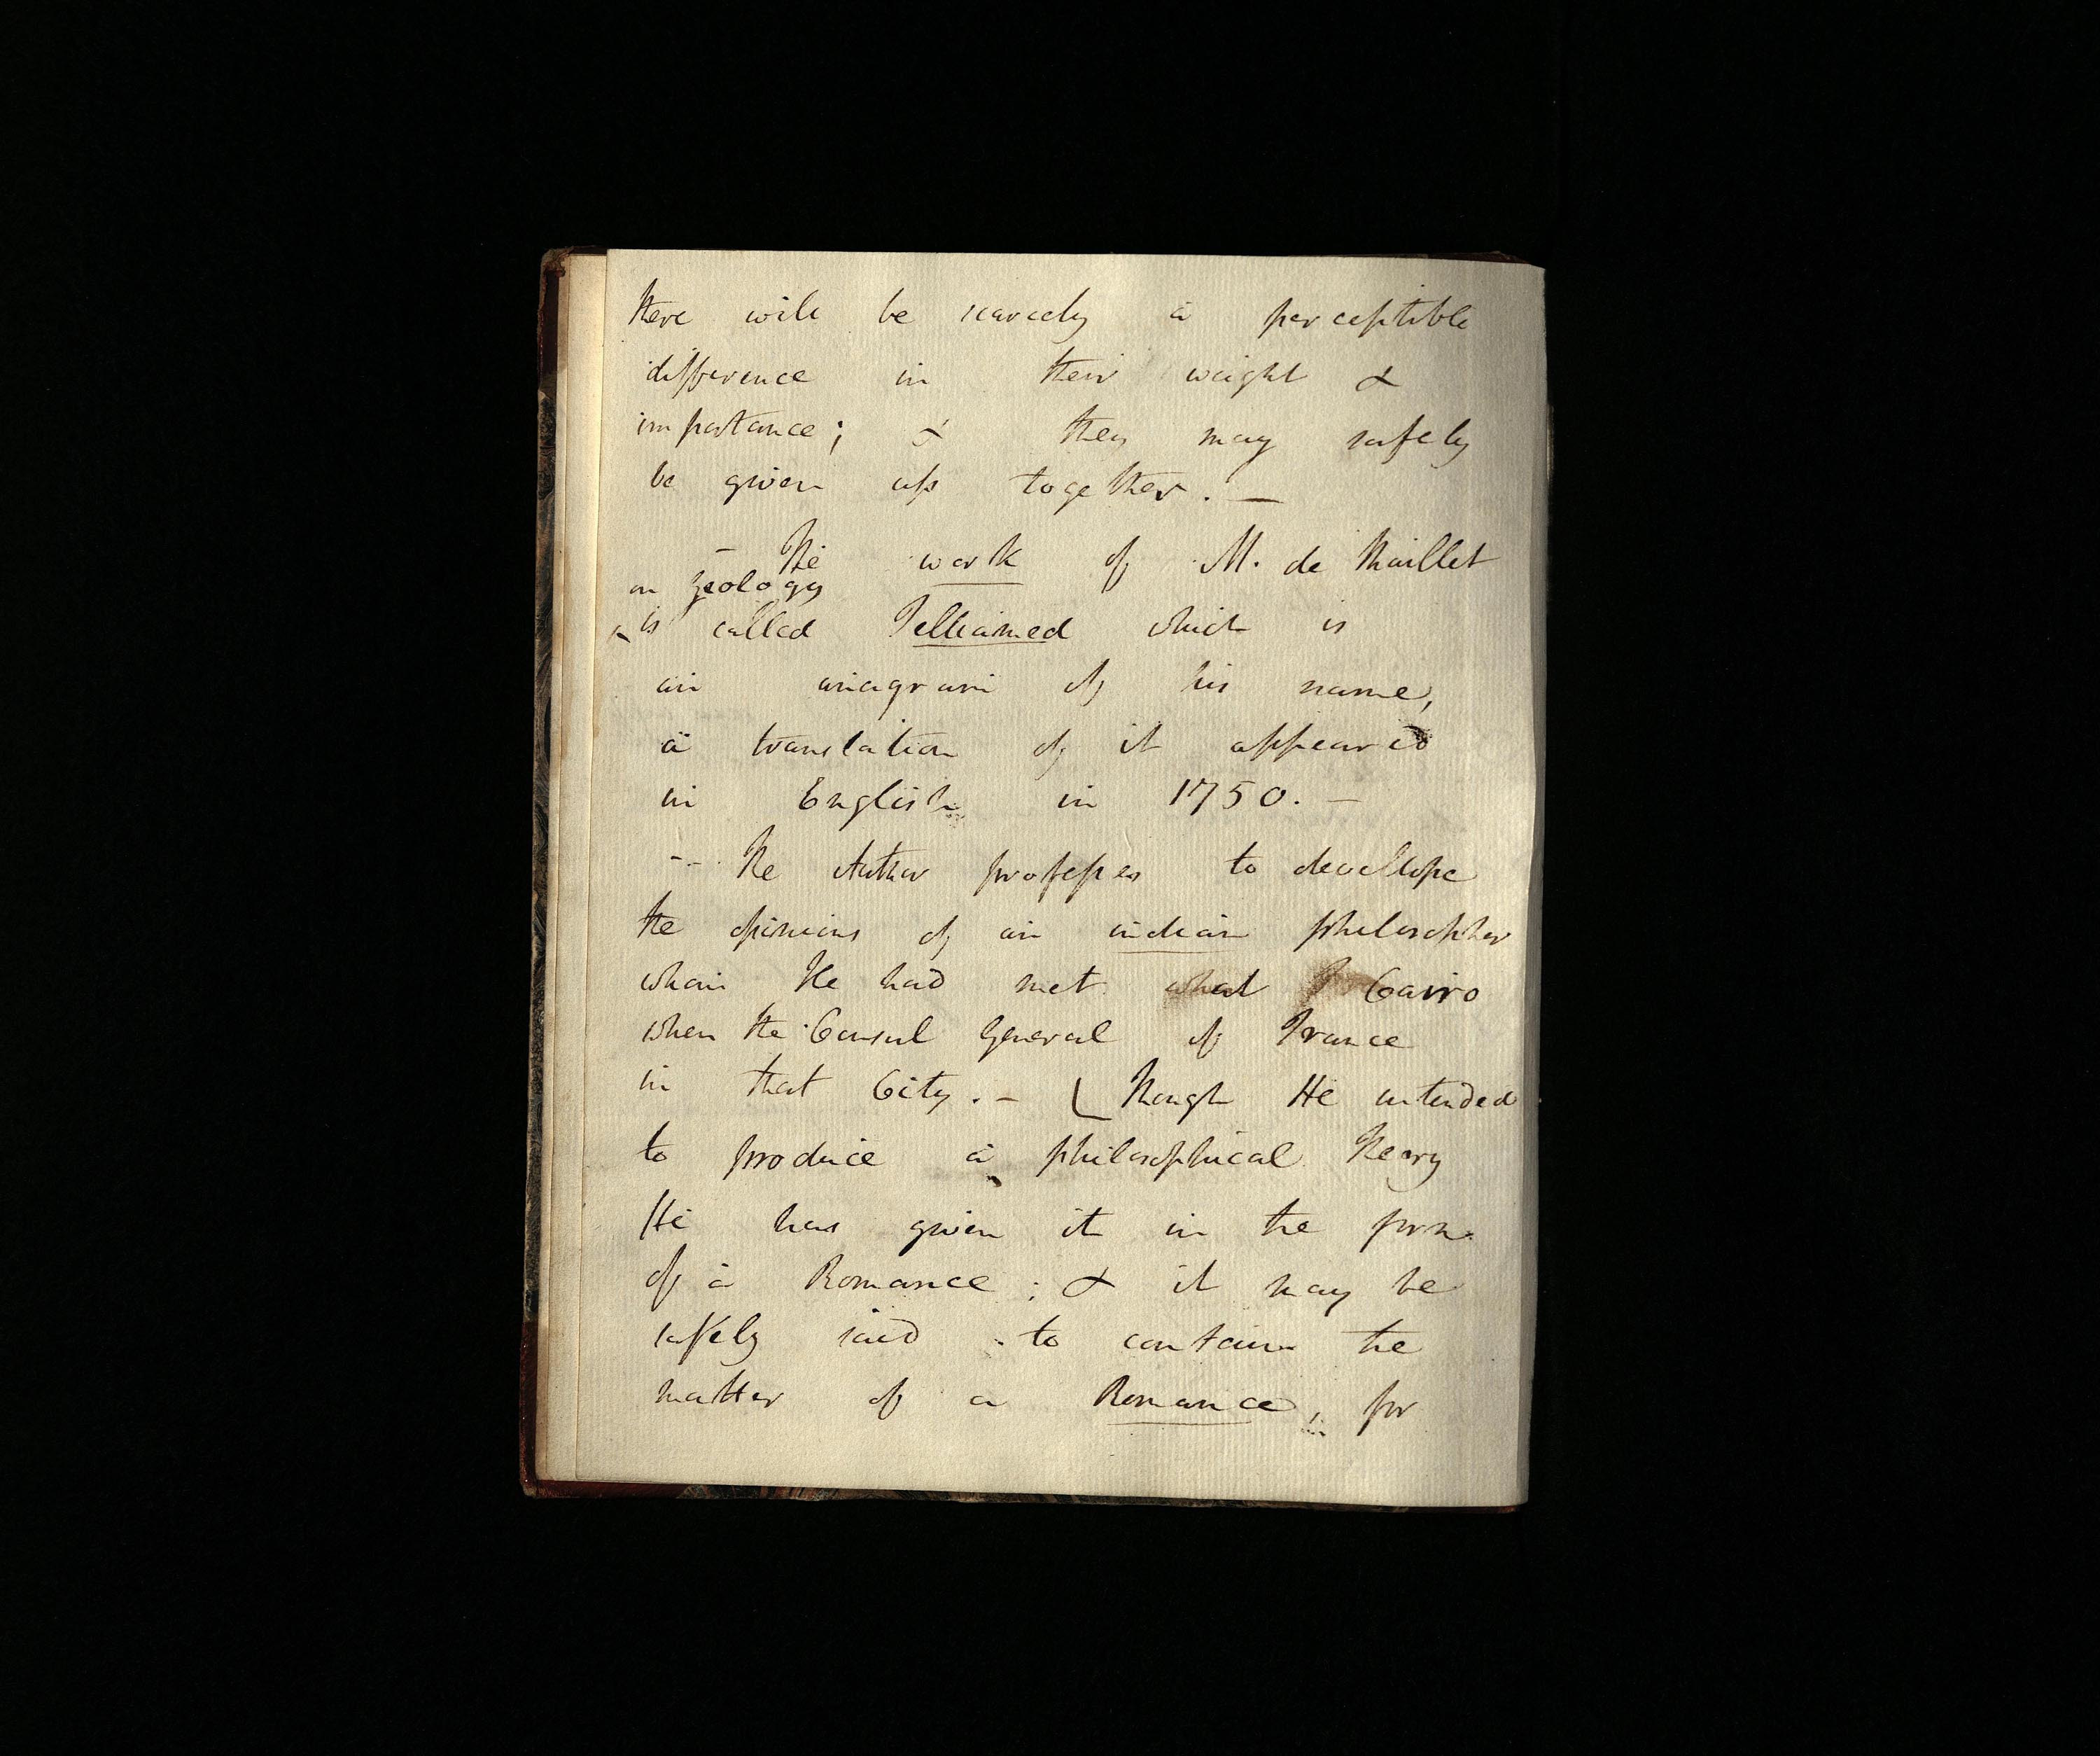 there will be scarcely a perceptible
difference in their weight &
importance; & they may safely
be given up together. —
— The work of M. de Maillet
on geology
^ is called Telliamed which is
an anagram of his name,
a translation of it appeared
in English in 1750. —
-- The Author professes to develope
the opinions of an indian philosopher
whom He had met at Cairo
when the Consul General of France
in that City. — [Though He intended
to produce a philosophical Theory
He has given it in the form
of a Romance; & it may be
safely said to contain the
matter of a Romance, for